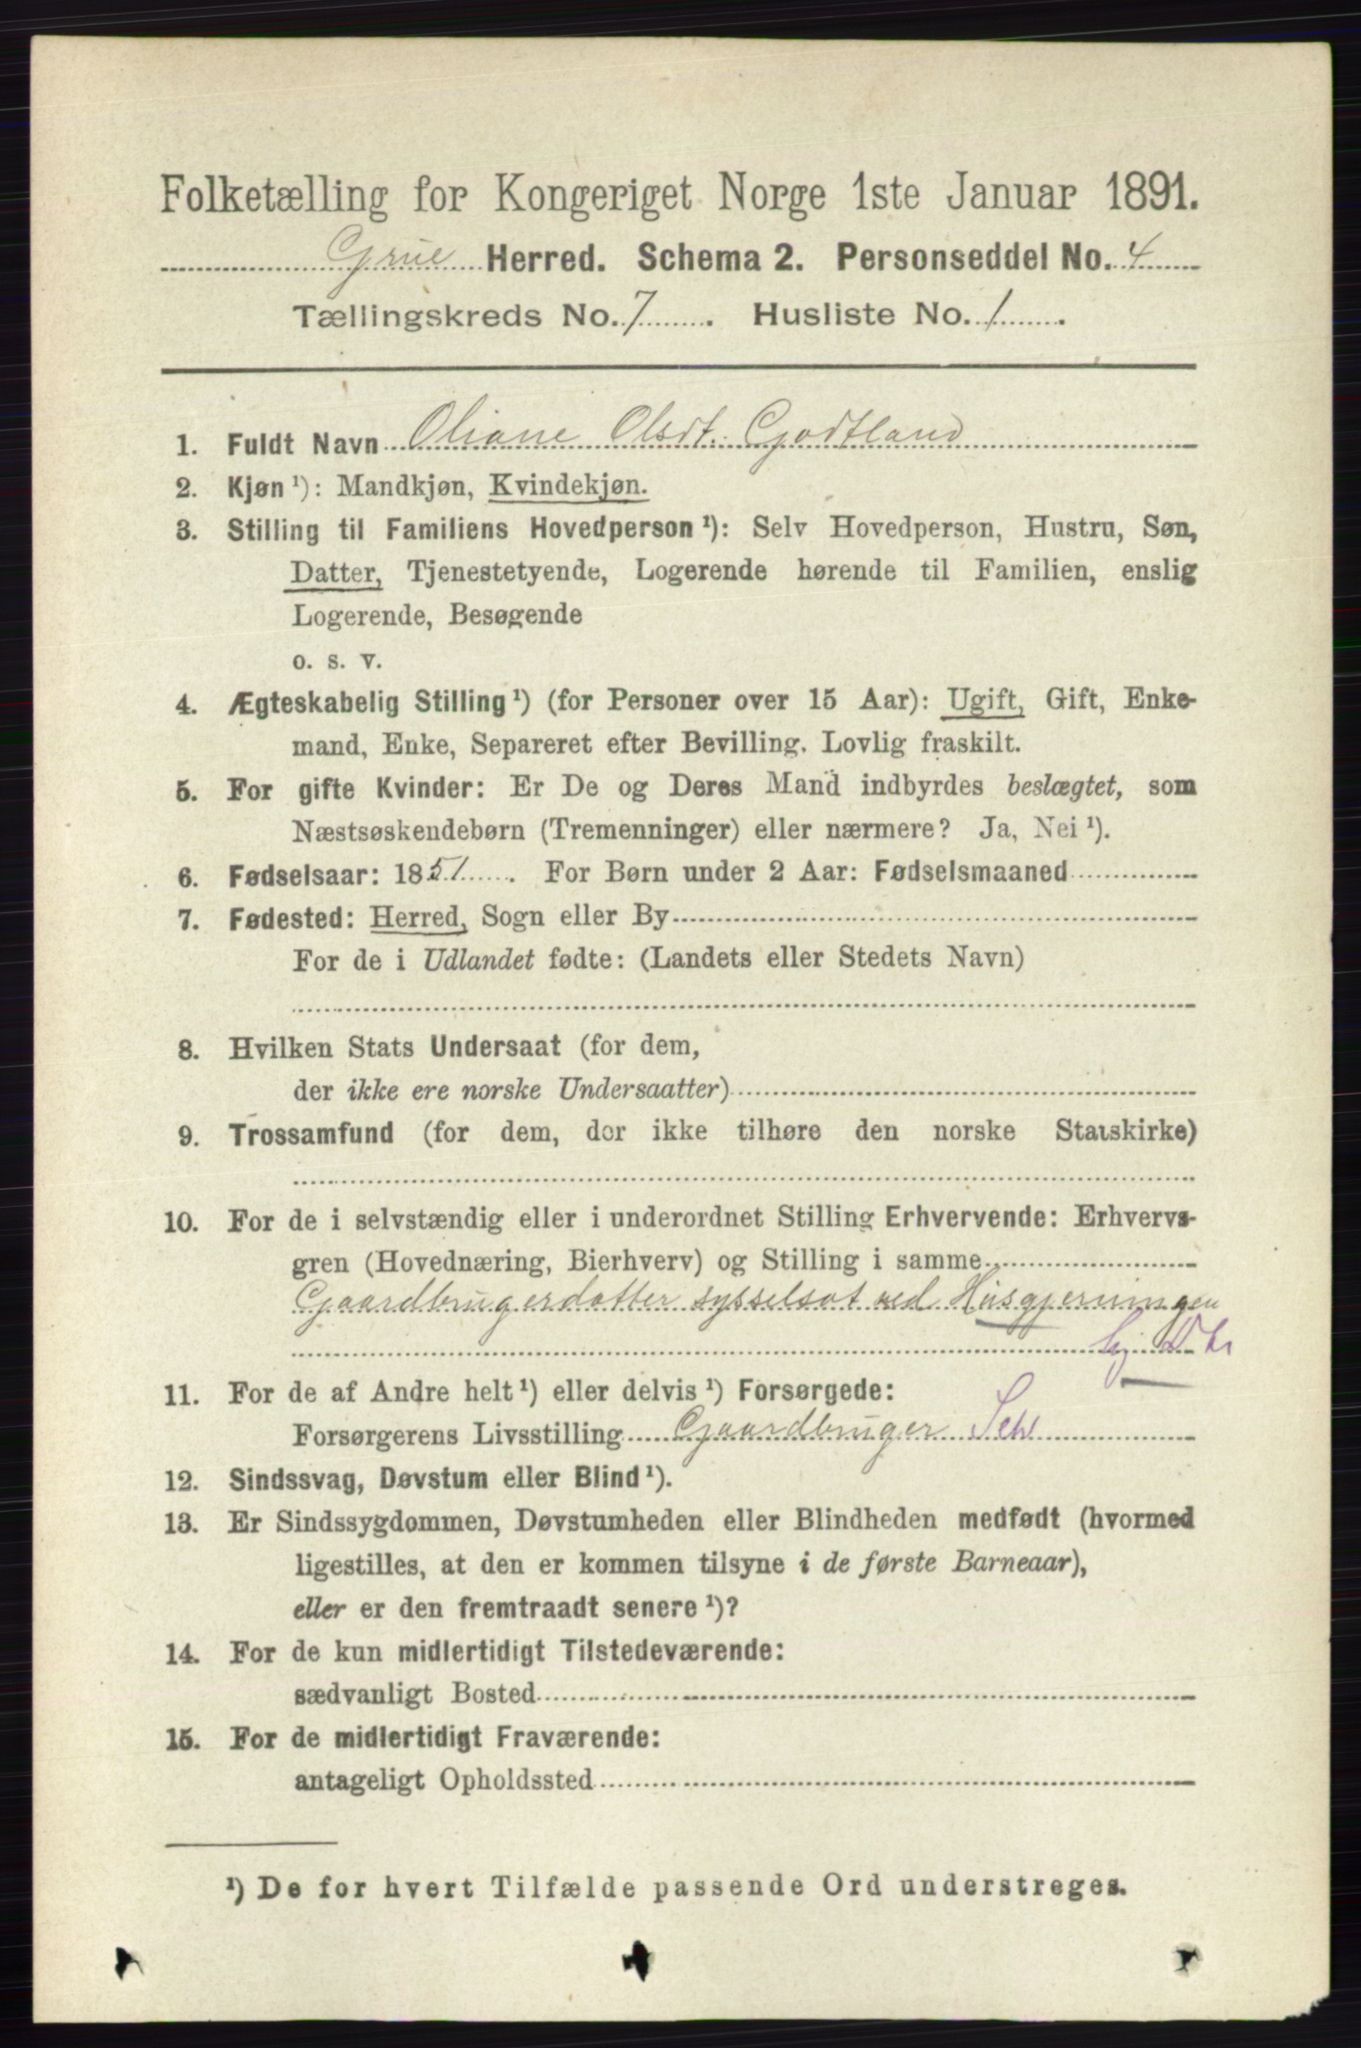 Folketælling for Kongeriget Norge 1ste Januar 1891.
Grue Herred. Schema 2. Personseddel No. 4
Tællingskreds No. 7. Husliste No. 1.
1. Fuldt Navn Oliane Olsdt. Godtland
2. Kjøn ¹): Mandkjøn, Kvindekjøn.
3. Stilling til Familiens Hovedperson ¹): Selv Hovedperson, Hustru, Søn,
Datter, Tjenestetyende, Logerende hørende til Familien, enslig
Logerende, Besøgende
o. s. v.
4. Ægteskabelig Stilling ¹) (for Personer over 15 Aar): Ugift, Gift, Enke-
mand, Enke, Separeret efter Bevilling. Lovlig fraskilt.
5. For gifte Kvinder: Er De og Deres Mand indbyrdes beslægtet, som
Næstsøskendebørn (Tremenninger) eller nærmere? Ja, Nei ¹).
6. Fødselsaar: 1851. For Børn under 2 Aar: Fødselsmaaned
7. Fødested: Herred, Sogn eller By
For de i Udlandet fødte: (Landets eller Stedets Navn)
8. Hvilken Stats Undersaat (for dem,
der ikke ere norske Undersaatter)
9. Trossamfund (for dem, der ikke tilhøre den norske Statskirke)
10. For de i selvstændig eller i underordnet Stilling Erhvervende: Erhvervs-
gren (Hovednæring, Bierhverv) og Stilling i samme
Gaardbrugerdatter sysselsat ved Husgjerningen
11. For de af Andre helt ¹) eller delvis ¹) Forsørgede:
Forsørgerens Livsstilling Gaardbruger Selv
12. Sindssvag, Døvstum eller Blind ¹).
13. Er Sindssygdommen, Døvstumheden eller Blindheden medfødt (hvormed
ligestilles, at den er kommen tilsyne i de første Barneaar),
eller er den fremtraadt senere ¹)?
14. For de kun midlertidigt Tilstedeværende:
sædvanligt Bosted
15. For de midlertidigt Fraværende:
antageligt Opholdssted
¹) De for hvert Tilfælde passende Ord understreges.